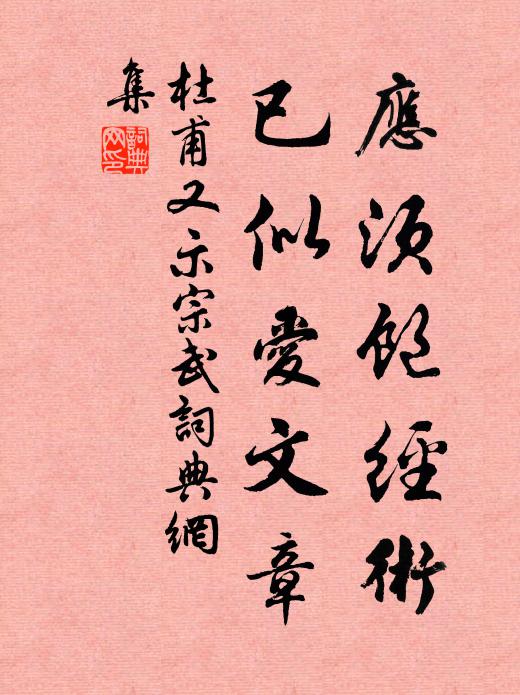 應須飽經術
已似愛文章
杜甫又示宗武詞典網
集
詞典
网印